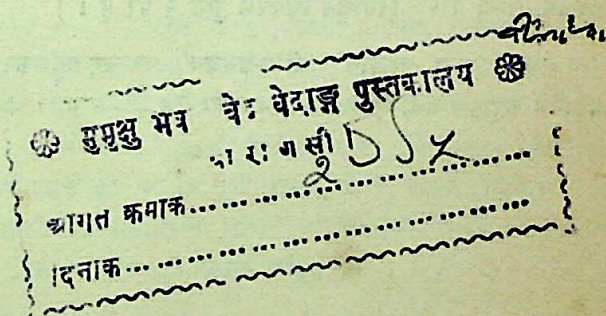 मुमुक्षु भव वेद वेदाङ्ग पुस्तकालय
वाराणसी
आगत क्रमाक.....................
दिनाक.....................